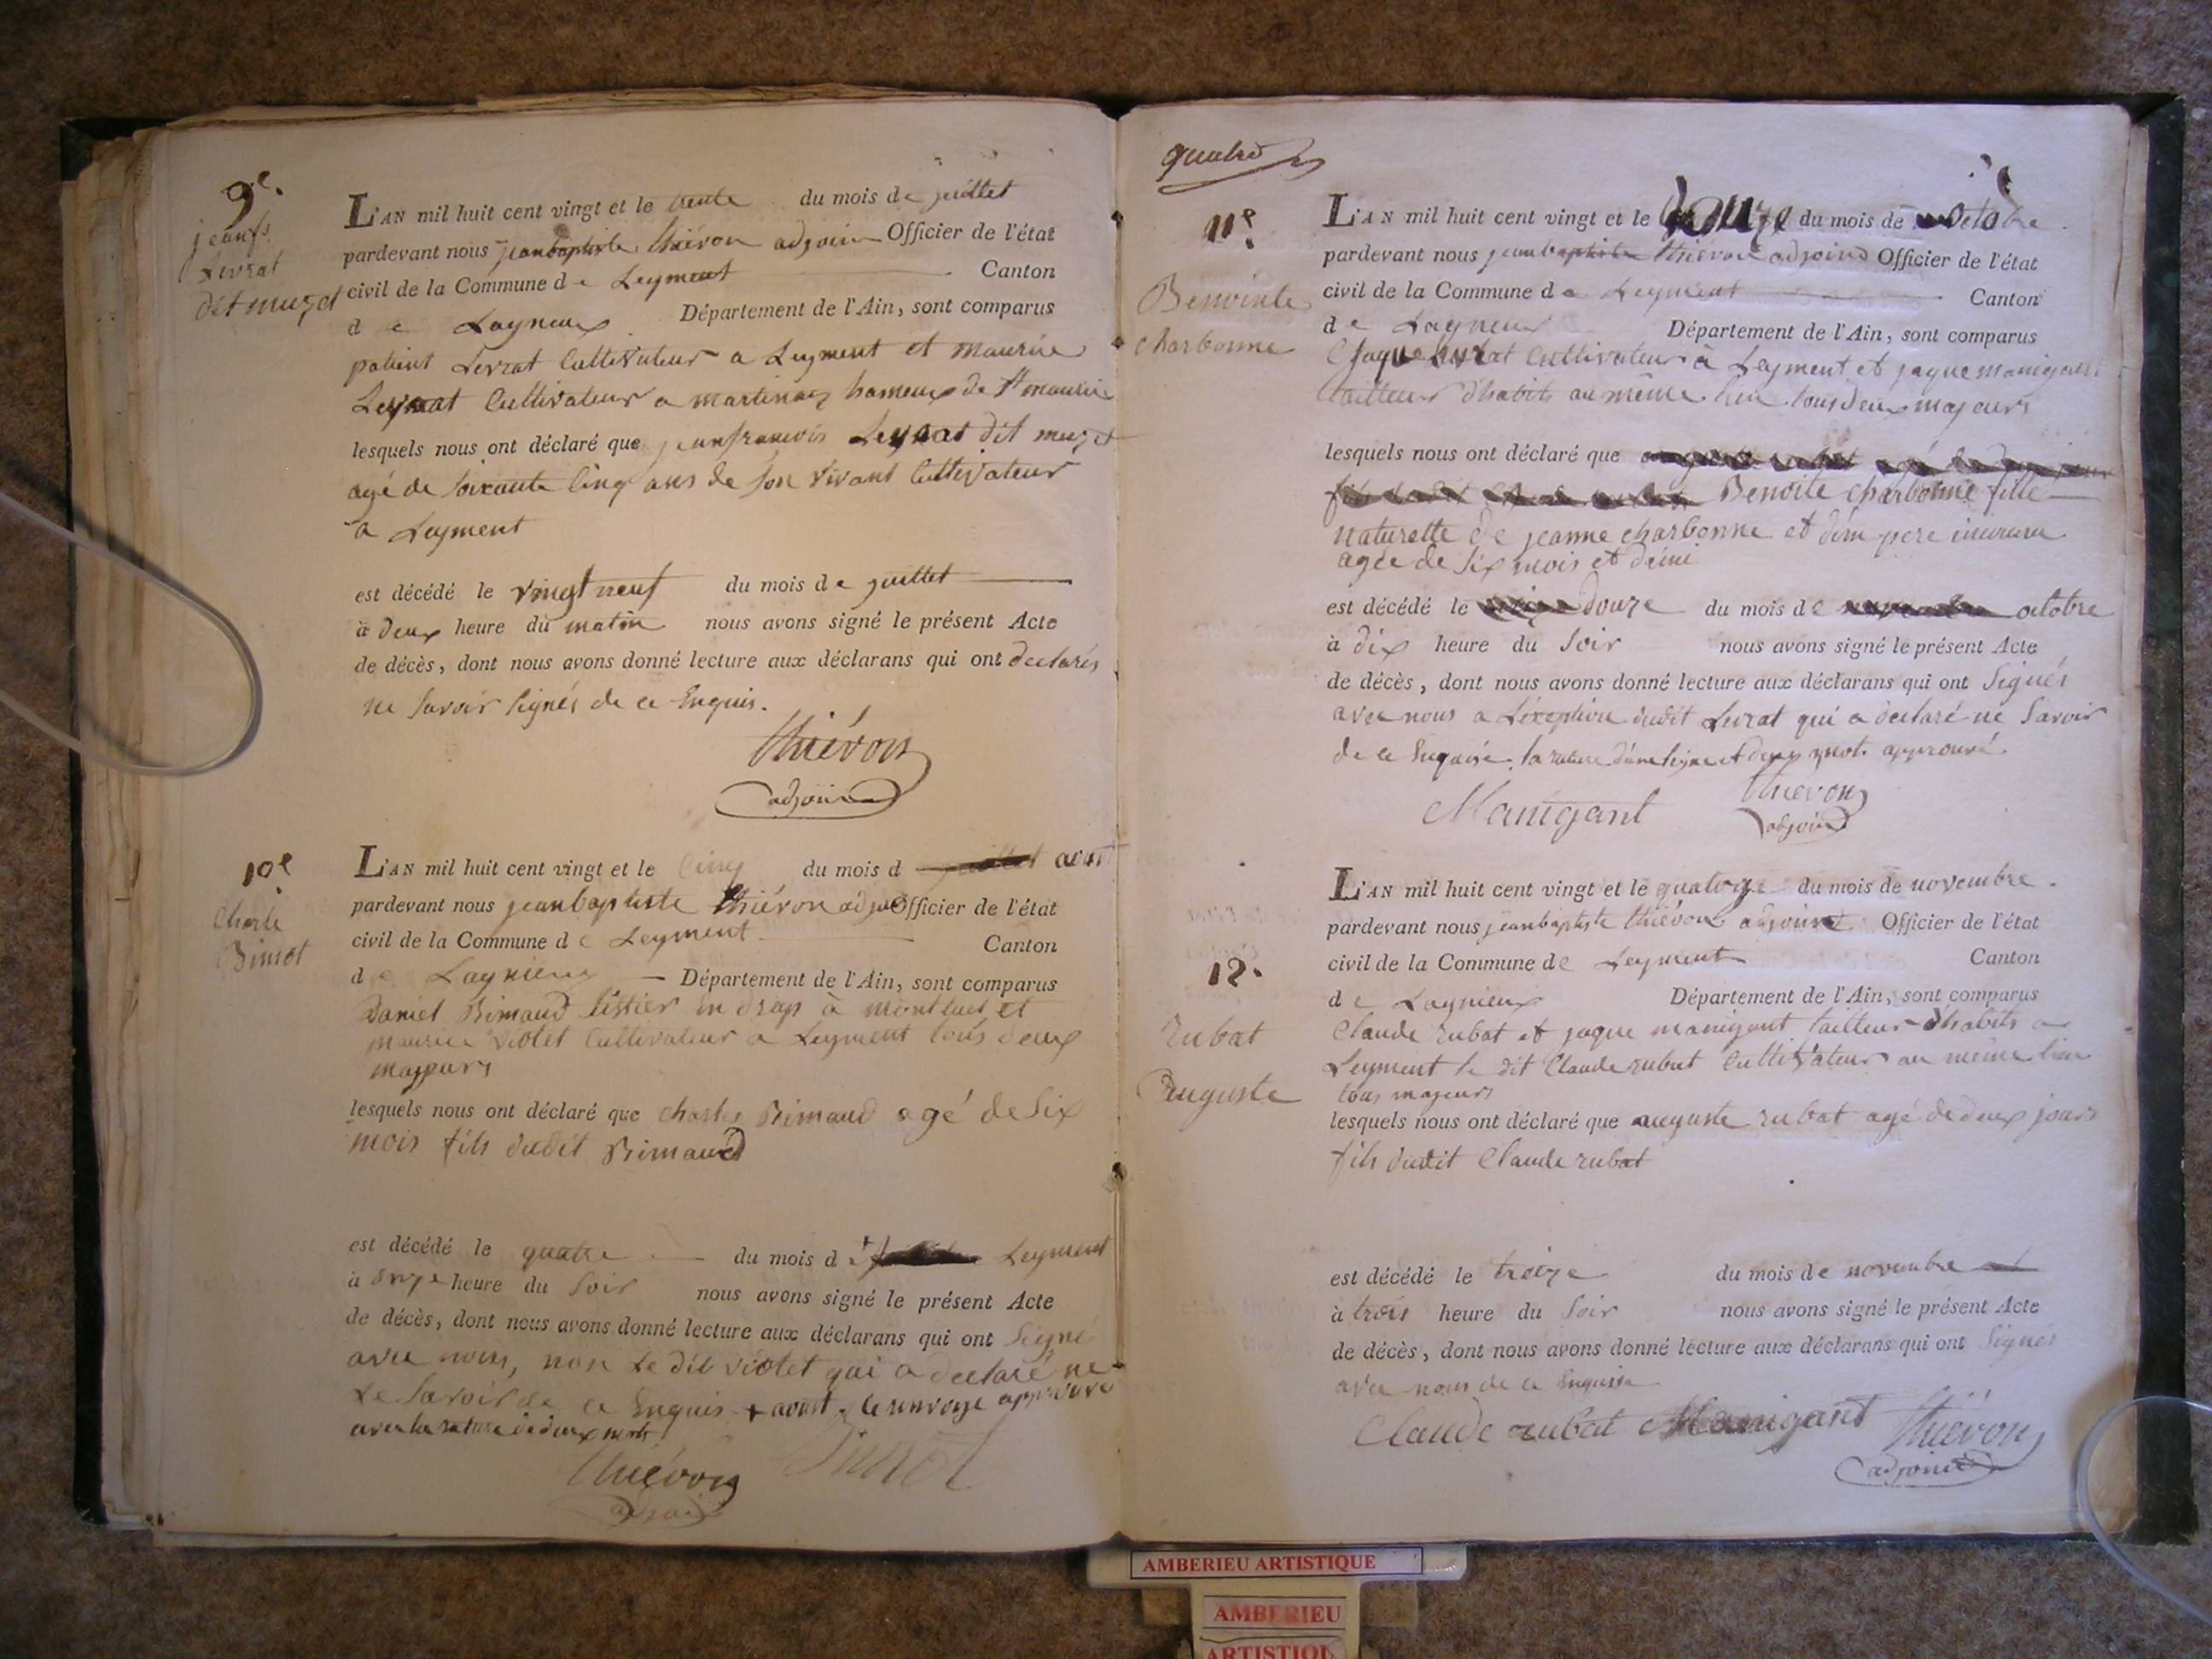 9e.
jean fs.
Levrat
dit muzet
L'AN mil huit cent vingt et le trente du mois de juillet
pardevant nous jean baptiste thiévon adjoint Officier de l'état
civil de la Commune de Leyment Canton
de Lagneux Département de l'Ain, sont comparus
Levrat Cultivateur a Leyment et maurice
Levrat Cultivateur a martinaz hameux de St maurice
lesquels nous ont déclaré que jean francois Levrat dit muzet
agé de soixante cinq ans de son vivant Cultivateur
a Leyment
est décédé le vingt neuf du mois de juillet
à deux heure du matin nous avons signé le présent Acte
de décès, dont nous avons donné lecture aux déclarans qui ont declarés
ne savoir signés de ce Enquis.
thiévon
adjoint
10e
Charle
L'AN mil huit cent vingt et le cinq du mois d juillet aout
pardevant nous jean baptiste thiévon adjoint Officier de l'état
civil de la Commune de Leyment Canton
de Lagnieux Département de l'Ain, sont comparus
Daniel Rimaud tissier en drap à montluel et
maurice violet Cultivateur a Leyment tous deux
majeurs
lesquels nous ont déclaré que charle Rimaud agé de six
mois fils dudit Rimaud
est décédé le quatre du mois d Leyment
à onze heure du soir nous avons signé le présent Acte
de décès, dont nous avons donné lecture aux déclarans qui ont signé
avec nous, non le dit violet qui a declaré ne
le savoir de ce Enquis + aout. le renvoye approuvé
avec la rature de deux mots
thiévon
adjoint
quatre
11e.
Benointe
charbonne
L'AN mil huit cent vingt et le douze du mois de octobre
pardevant nous jean baptiste thiévon adjoind Officier de l'état
civil de la Commune de Leyment Canton
de Lagneux Département de l'Ain, sont comparus
jaque Levrat Cultivateur à Leyment et jaque manigant
tailleur d'habits au même lieu tous deux majeurs
lesquels nous ont déclaré que
Benoite charbonne fille
naturelle de jeanne charbonne et d'un pere inconnu
agée de six mois et demi
est décédé le douze du mois de octobre
à dix heure du soir nous avons signé le présent Acte
de décès, dont nous avons donné lecture aux déclarans qui ont signés
avec nous a L'exeption dudit Levrat qui a declaré ne savoir
de ce Enquise. la rature d'une ligne et deux mot. approuvé.
Manigant thievon
adjoind
12.
rubat
auguste
L'AN mil huit cent vingt et le quatorze du mois de novembre.
pardevant nous jean baptiste thiévon adjoint Officier de l'état
civil de la Commune de Leyment Canton
de Lagnieux Département de l'Ain, sont comparus
Claude rubat et jaque manigant tailleur d'habits a
Leyment le dit Claude rubat Cultivateur au même lieu
tous majeurs
lesquels nous ont déclaré que auguste rubat agé de deux jours
fils dudit Claude rubat
est décédé le treize du mois de novembre
à trois heure du soir nous avons signé le présent Acte
de décès, dont nous avons donné lecture aux déclarans qui ont signés
avec nous de ce Enquise
Claude rubat Manigant thiévon
adjoint
AMBERIEU ARTISTIQUE
AMBERIEU
ARTISTIQU